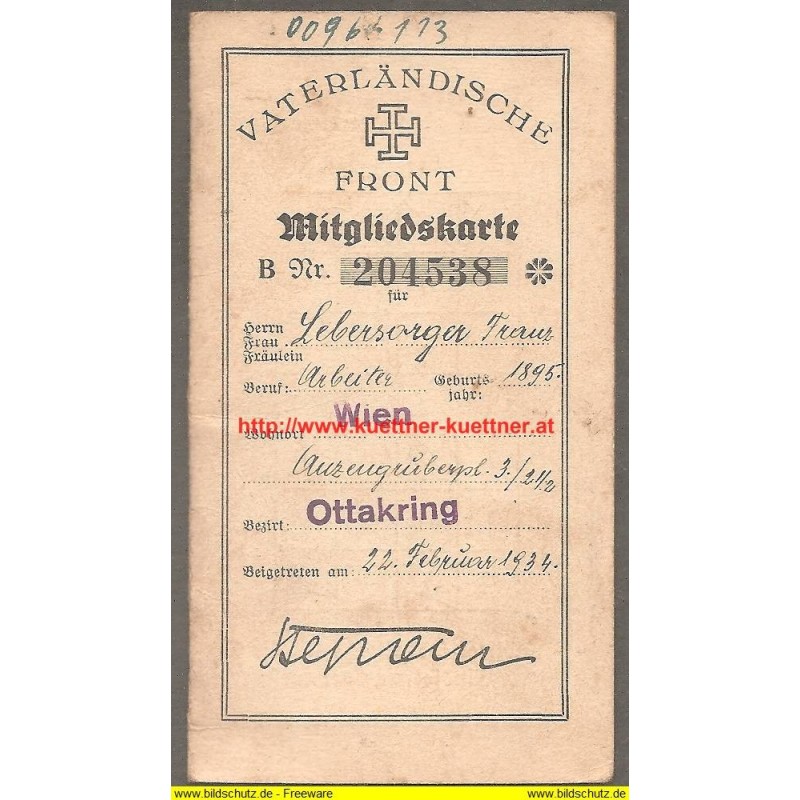 0096 113
VATERLÄNDISCHE
FRONT
Mitgliedskarte
B Nr. 204538
für
Herrn
Frau Lebersorger Franz
Fräulein
Beruf: Arbeiter Geburtsjahr: 1895.
Wien
http://www.kuettner-kuettner.at
Wohnort
Anzengruberpl. 3./21/2
Bezirk: Ottakring
Beigetreten am: 22. Februar 1934.
www.bildschutz.de - Freeware
www.bildschutz.de